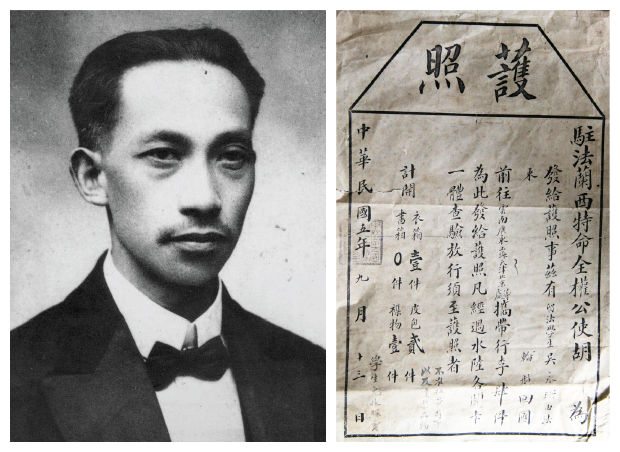 護照
駐法蘭西特命全權公使胡 為
發給護照事茲有 吳 由法
來 回國
前往 攜帶行李肆件
為此發給護照凡經過水陸各關卡
一體查驗放行須至護照者
計開 衣箱壹件 皮包貳件
書箱0件 襍物壹件
中華民國五年九月十三日
學生